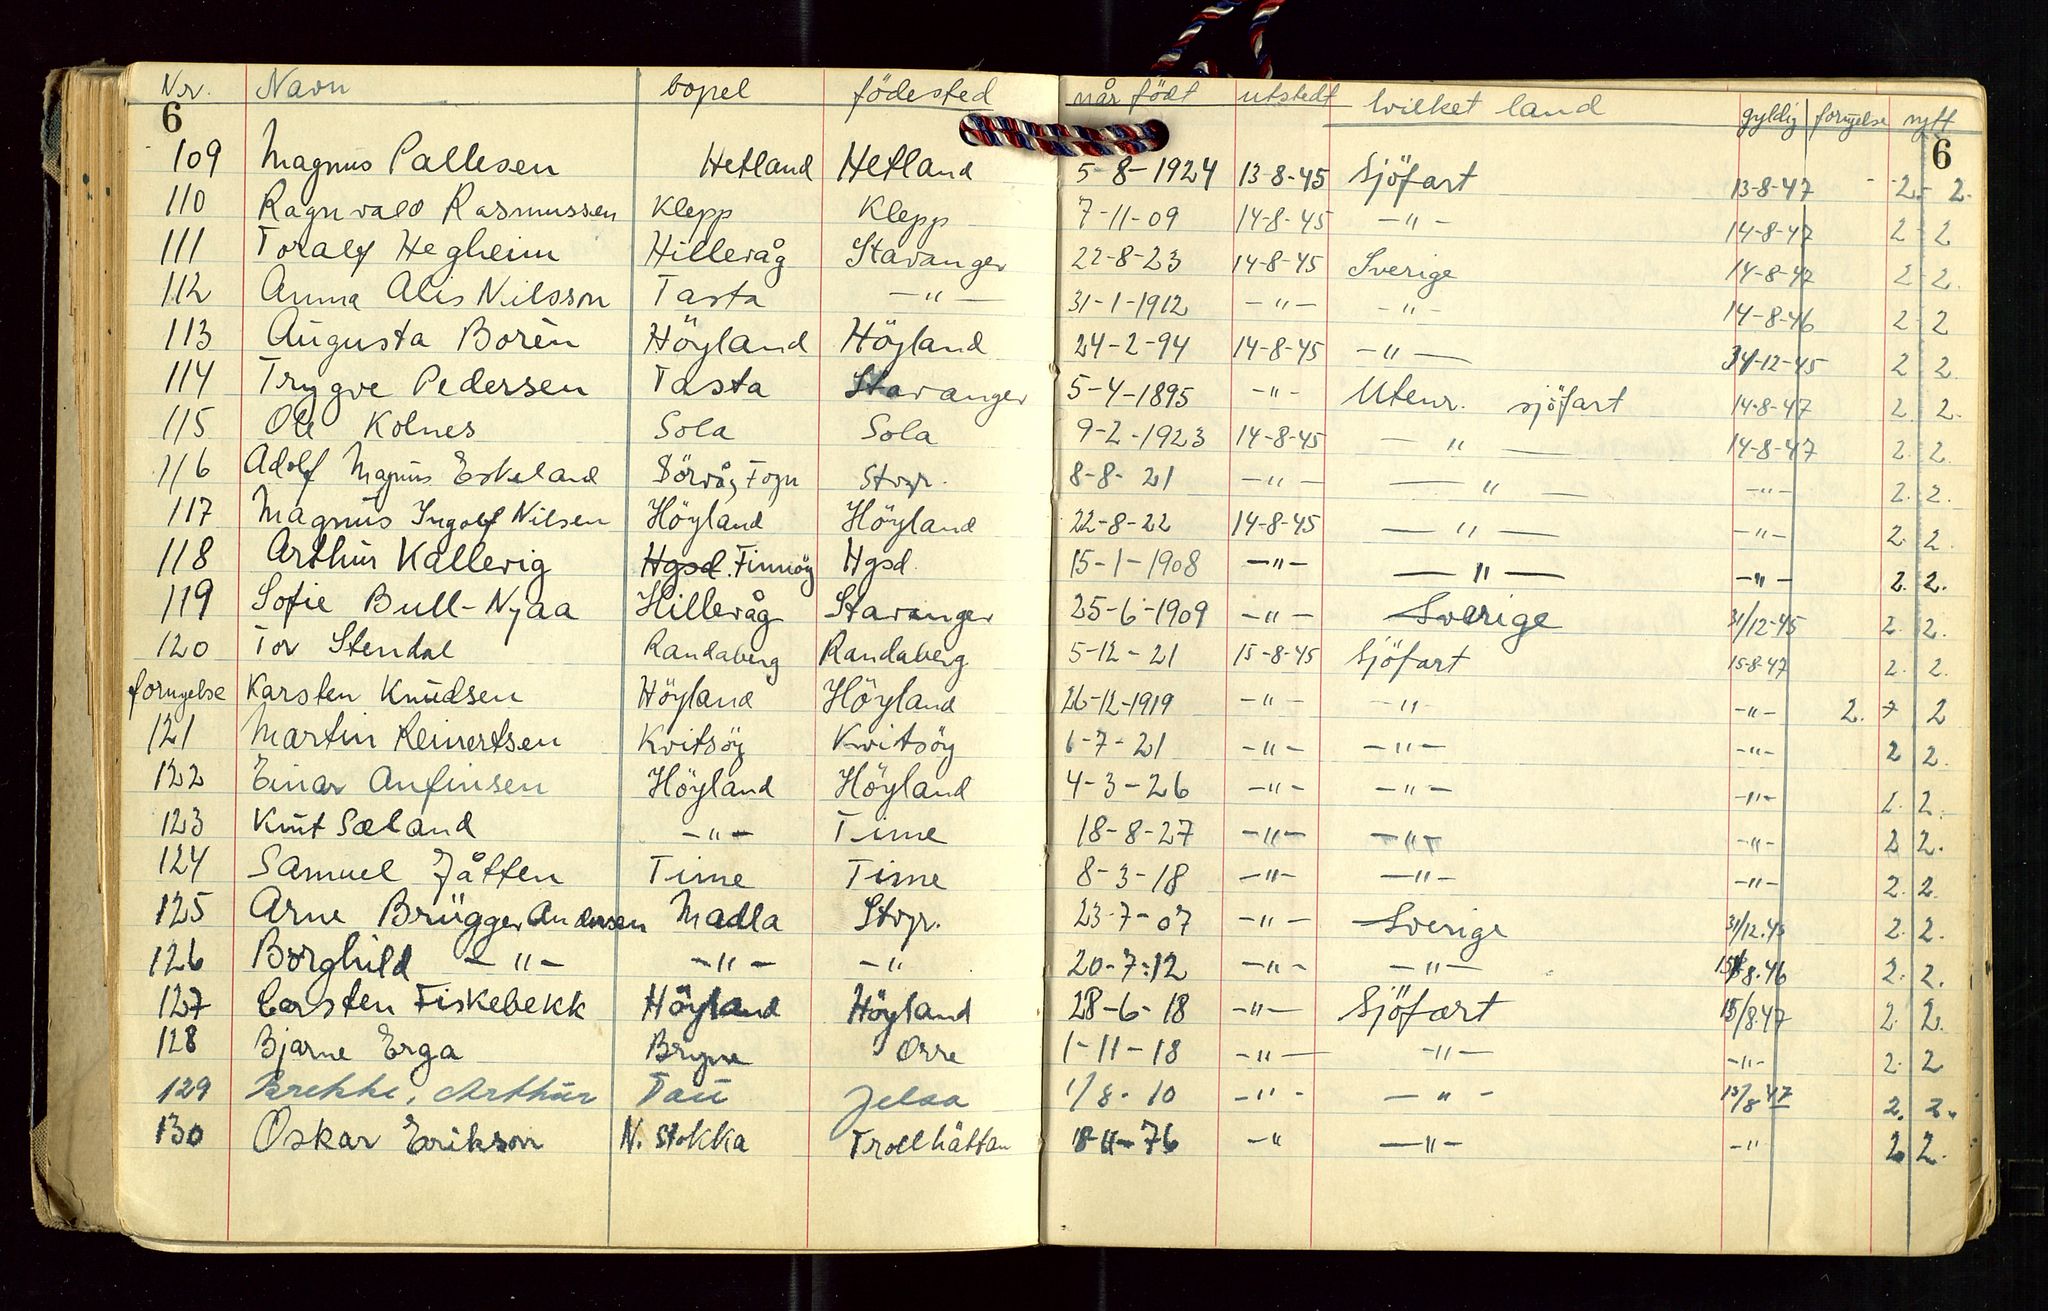 Nr. Navn bopel födested når födt utstedt hvilket land gyldig fornyelse nytt
6 6
109 Magnus Pallesen Hetland Hetland 5-8-1924 13-8-45 Sjöfart 13-8-47 2.- 2.
110 Ragnvald Rasmussen Klepp Klepp 7-11-09 14-8-45 -"- 14-8-47 2 2
111 Toralf Hegheim Hillevåg Stavanger 22-8-23 14-8-45 Sverige 14-8-47 2 2.
112 Anna Alis Nilsson Tasta -"- 31-1-1912 -"- -"- 14-8-46 2 2
113 Augusta Borèn Höyland Höyland 24-2-94 14-8-45 -"- 31-12-45 2 2
114 Trygve Pedersen Tasta Stavanger 5-4-1895 -"- Utenr. sjöfart 14-8-47 2. 2.
115 Ole Kolnes Sola Sola 9-2-1923 14-8-45 -"- 14-8-47 2. 2.
116 Adolf Magnus Eskeland Sörvåg Fogn Stvgr. 8-8-21 -"- -"- -"- 2. 2.
117 Magnus Ingolf Nilsen Höyland Höyland 22-8-22 14-8-45 -"- -"- 2. 2.
118 Arthur Kallevig Hgsd. Finnöy Hgsd. 15-1-1908 -"- -"- -"- 2. 2.
119 Sofie Bull-Nyaa Hillevåg Stavanger 25-6-1909 -"- Sverige 31/12-45 2. 2.
120 Tor Stendal Randaberg Randaberg 5-12-21 15-8-45 Sjöfart 15-8-47 2. 2.
fornyelse Karsten Knudsen Höyland Höyland 26-12-1919 -"- -"- -"- 2. 2
121 Martin Reinertsen Kvitsöy Kvitsöy 6-7-21 -"- -"- -"- 2 2.
122 Einar Anfinsen Höyland Höyland 4-3-26 -"- -"- -"- 2. 2.
123 Knut Sæland -"- Time 18-8-27 -"- -"- -"- 2 2.
124 Samuel Jåtten Time Time 8-3-18 -"- -"- -"- 2. 2.
125 Arne Brügger Andersen Madla Stvgr. 23-7-07 -"- Sverige 31/12.45 2. 2.
126 Borghild -"- -"- -" 20-7-12 -"- -"- 15/8.46 2. 2.
127 Carsten Fiskebekk Höyland Höyland 28-6-18 -"- Sjöfart 15/8.47 2. 2.
128 Bjarne Erga Bryne Orre 1-11-18 -"- -"- -"- 2. 2
129 Brekke, Arthur Tau Jelsa 1/8-10 -"- -"- 15/8 47 2. 2.
130 Oskar Erikson N. Stokka Trollhättan 18-11-76 -" -"- -" 2 2.